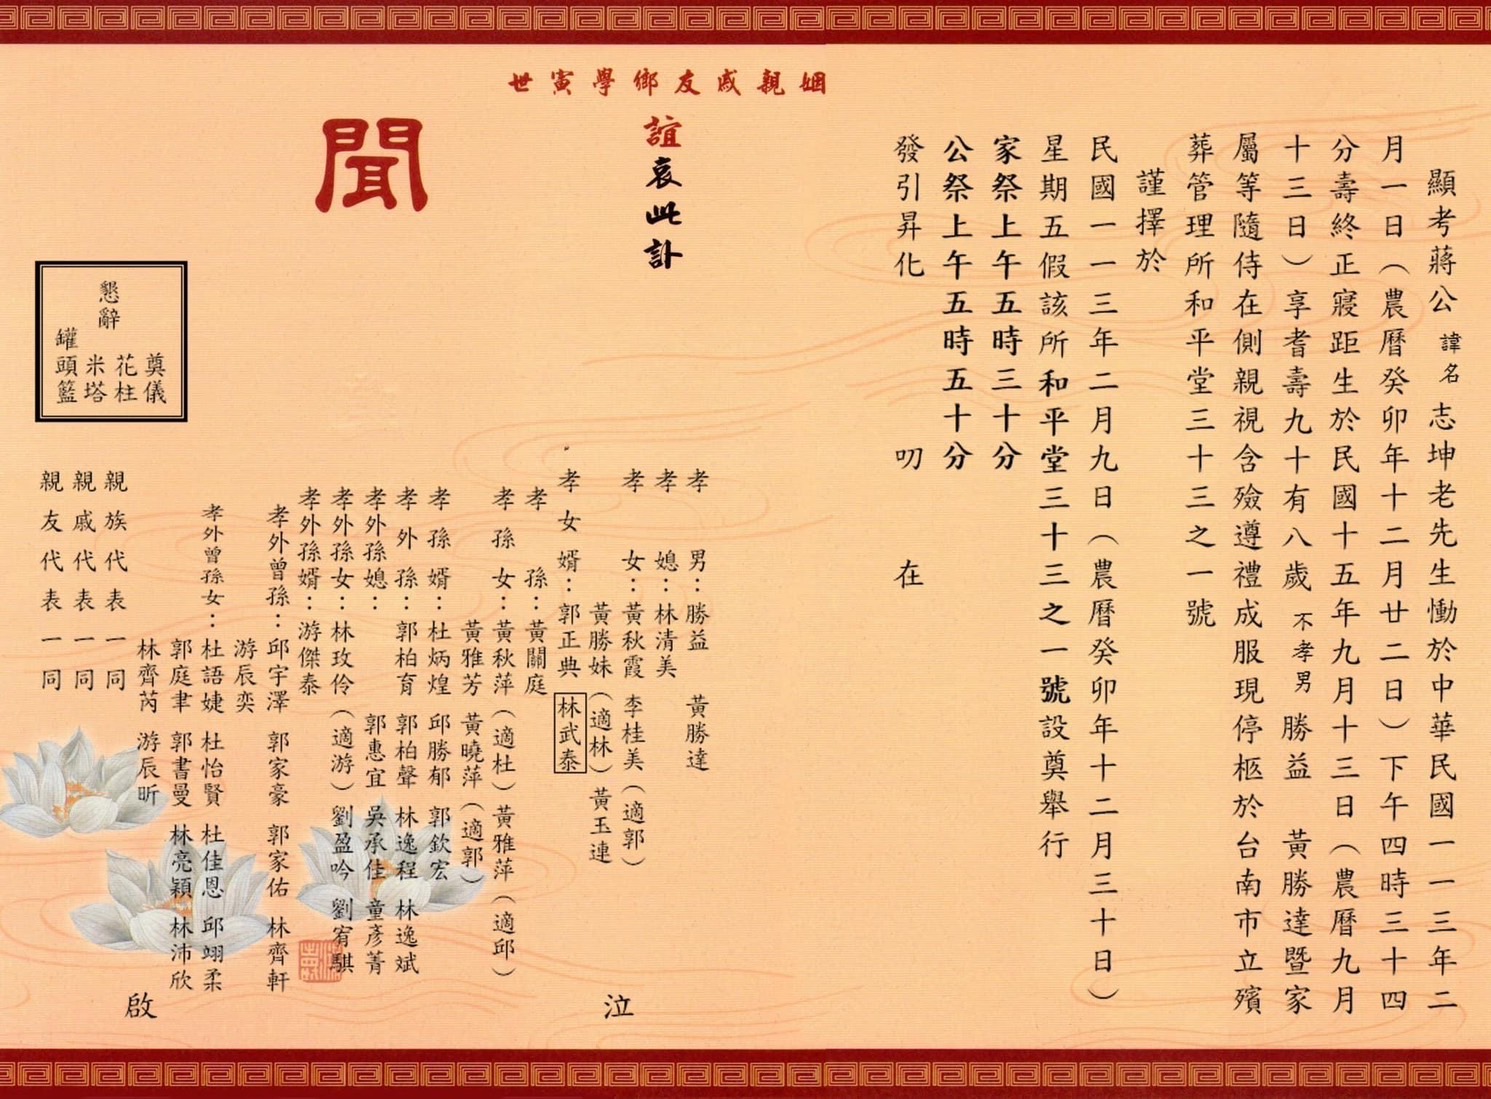 顯考蔣公諱名志坤老先生慟於中華民國一一三年二
月一日（農曆癸卯年十二月廿二日）下午四時三十四
分壽終正寢距生於民國十五年九月十三日（農曆九月
十三日）享耆壽九十有八歲不孝男勝益 黃勝達暨家
屬等隨侍在側親視含殮遵禮成服現停柩於台南市立殯
葬管理所和平堂三十三之一號
謹擇於
民國一一三年二月九日（農曆癸卯年十二月三十日）
星期五假該所和平堂三十三之一號設奠舉行
家祭上午五時三十分
公祭上午五時五十分
發引昇化 叨 在
姻親戚友鄉學寅世
誼哀此訃
聞
孝男：勝益 黃勝達
孝媳：林清美
孝女：黃秋霞 李桂美（適郭）
黃勝妹（適林）黃玉連
孝女婿：郭正典 林武泰
孝孫：黃關庭
孝孫女：黃秋萍（適杜）黃雅萍（適邱）
黃雅芳 黃曉萍（適郭）
孝孫婿：杜炳煌 邱勝郁 郭欽宏
孝外孫：郭柏育 郭柏聲 林逸程 林逸斌
孝外孫媳：郭惠宜 吳承佳 童彥菁
孝外孫女：林玫伶（適游）劉盈吟 劉宥騏
孝外孫婿：游傑泰
孝外曾孫：邱宇澤 郭家豪 郭家佑 林齊軒
游辰奕
孝外曾孫女：杜語婕 杜怡賢 杜佳恩 邱翊柔
郭庭聿 郭書曼 林亮穎 林沛欣
林齊芮 游辰昕
親族代表一同
親戚代表一同
親友代表一同
泣
啟
懇辭
奠儀
花柱
米塔
罐頭籃